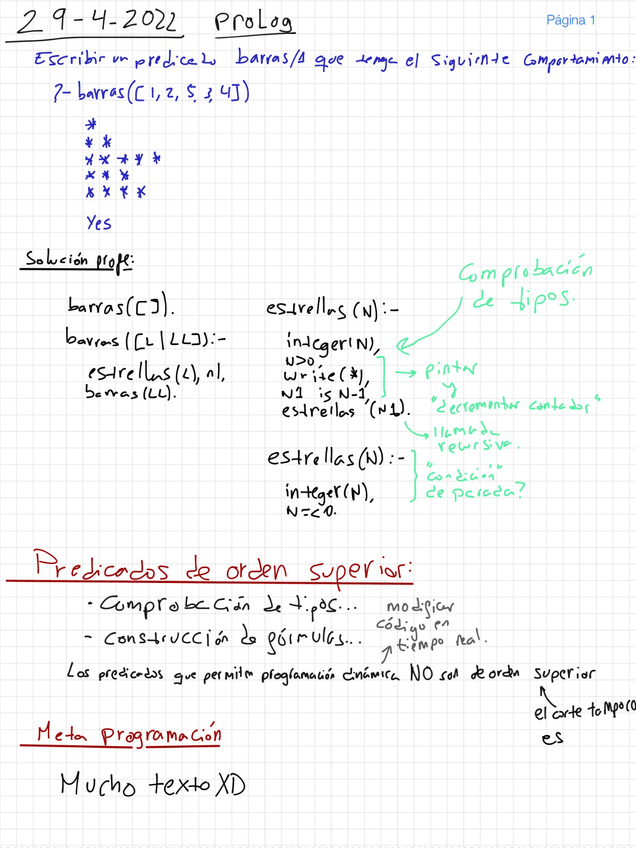 29-4-2022 Prolog
Página 1
Escribir un predicado barras/1 que tenga el siguiente comportamiento:
?- barras([1, 2, 5, 3, 4])
*
* *
* * * * *
* * *
* * * *
Yes
Solución profe:
barras([]).
barras([L|LL]):-
estrellas(L), nl,
barras(LL).
estrellas(N):-
integer(N),
N>0,
write(*),
N1 is N-1,
estrellas(N1).
estrellas(N):-
integer(N),
N=<0.
Comprobación
de tipos.
pintar
y
"decrementar contador"
llamada
recursiva.
"condición"
de parada?
Predicados de orden superior:
- Comprobación de tipos...
- Construcción de fórmulas...
modificar
código en
tiempo real.
Los predicados que permiten programación dinámica NO son de orden superior
el corte tampoco
es
Meta Programación
Mucho texto XD